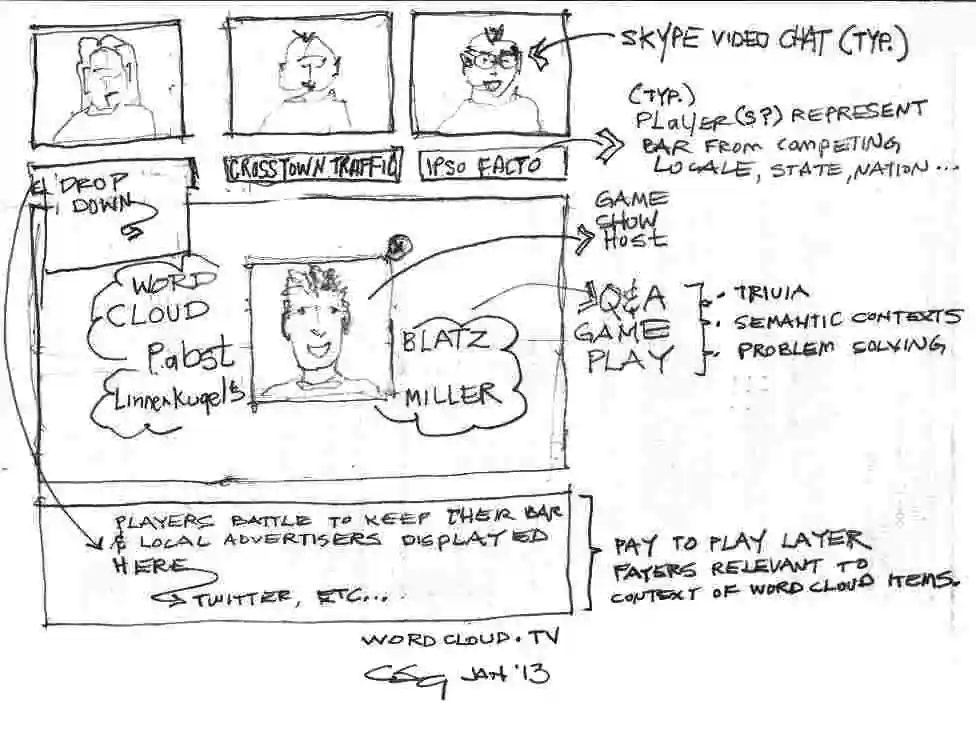 SKYPE VIDEO CHAT (TYP.)
(TYP.)
PLAYER(S?) REPRESENT
BAR FROM COMPETING
LOCALE, STATE, NATION...
DROP
DOWN
CROSSTOWN TRAFFIC
IPSO FACTO
GAME
SHOW
HOST
WORD
CLOUD
Pabst
LinnenKugel's
BLATZ
MILLER
Q&A
GAME
PLAY
· TRIVIA
· SEMANTIC CONTEXTS
· PROBLEM SOLVING
PLAYERS BATTLE TO KEEP THEIR BAR
& LOCAL ADVERTISERS DISPLAYED
HERE
TWITTER, ETC....
PAY TO PLAY LAYER
FAYERS RELEVANT TO
CONTEXT OF WORD CLOUD ITEMS.
WORD CLOUD.TV
JAN '13